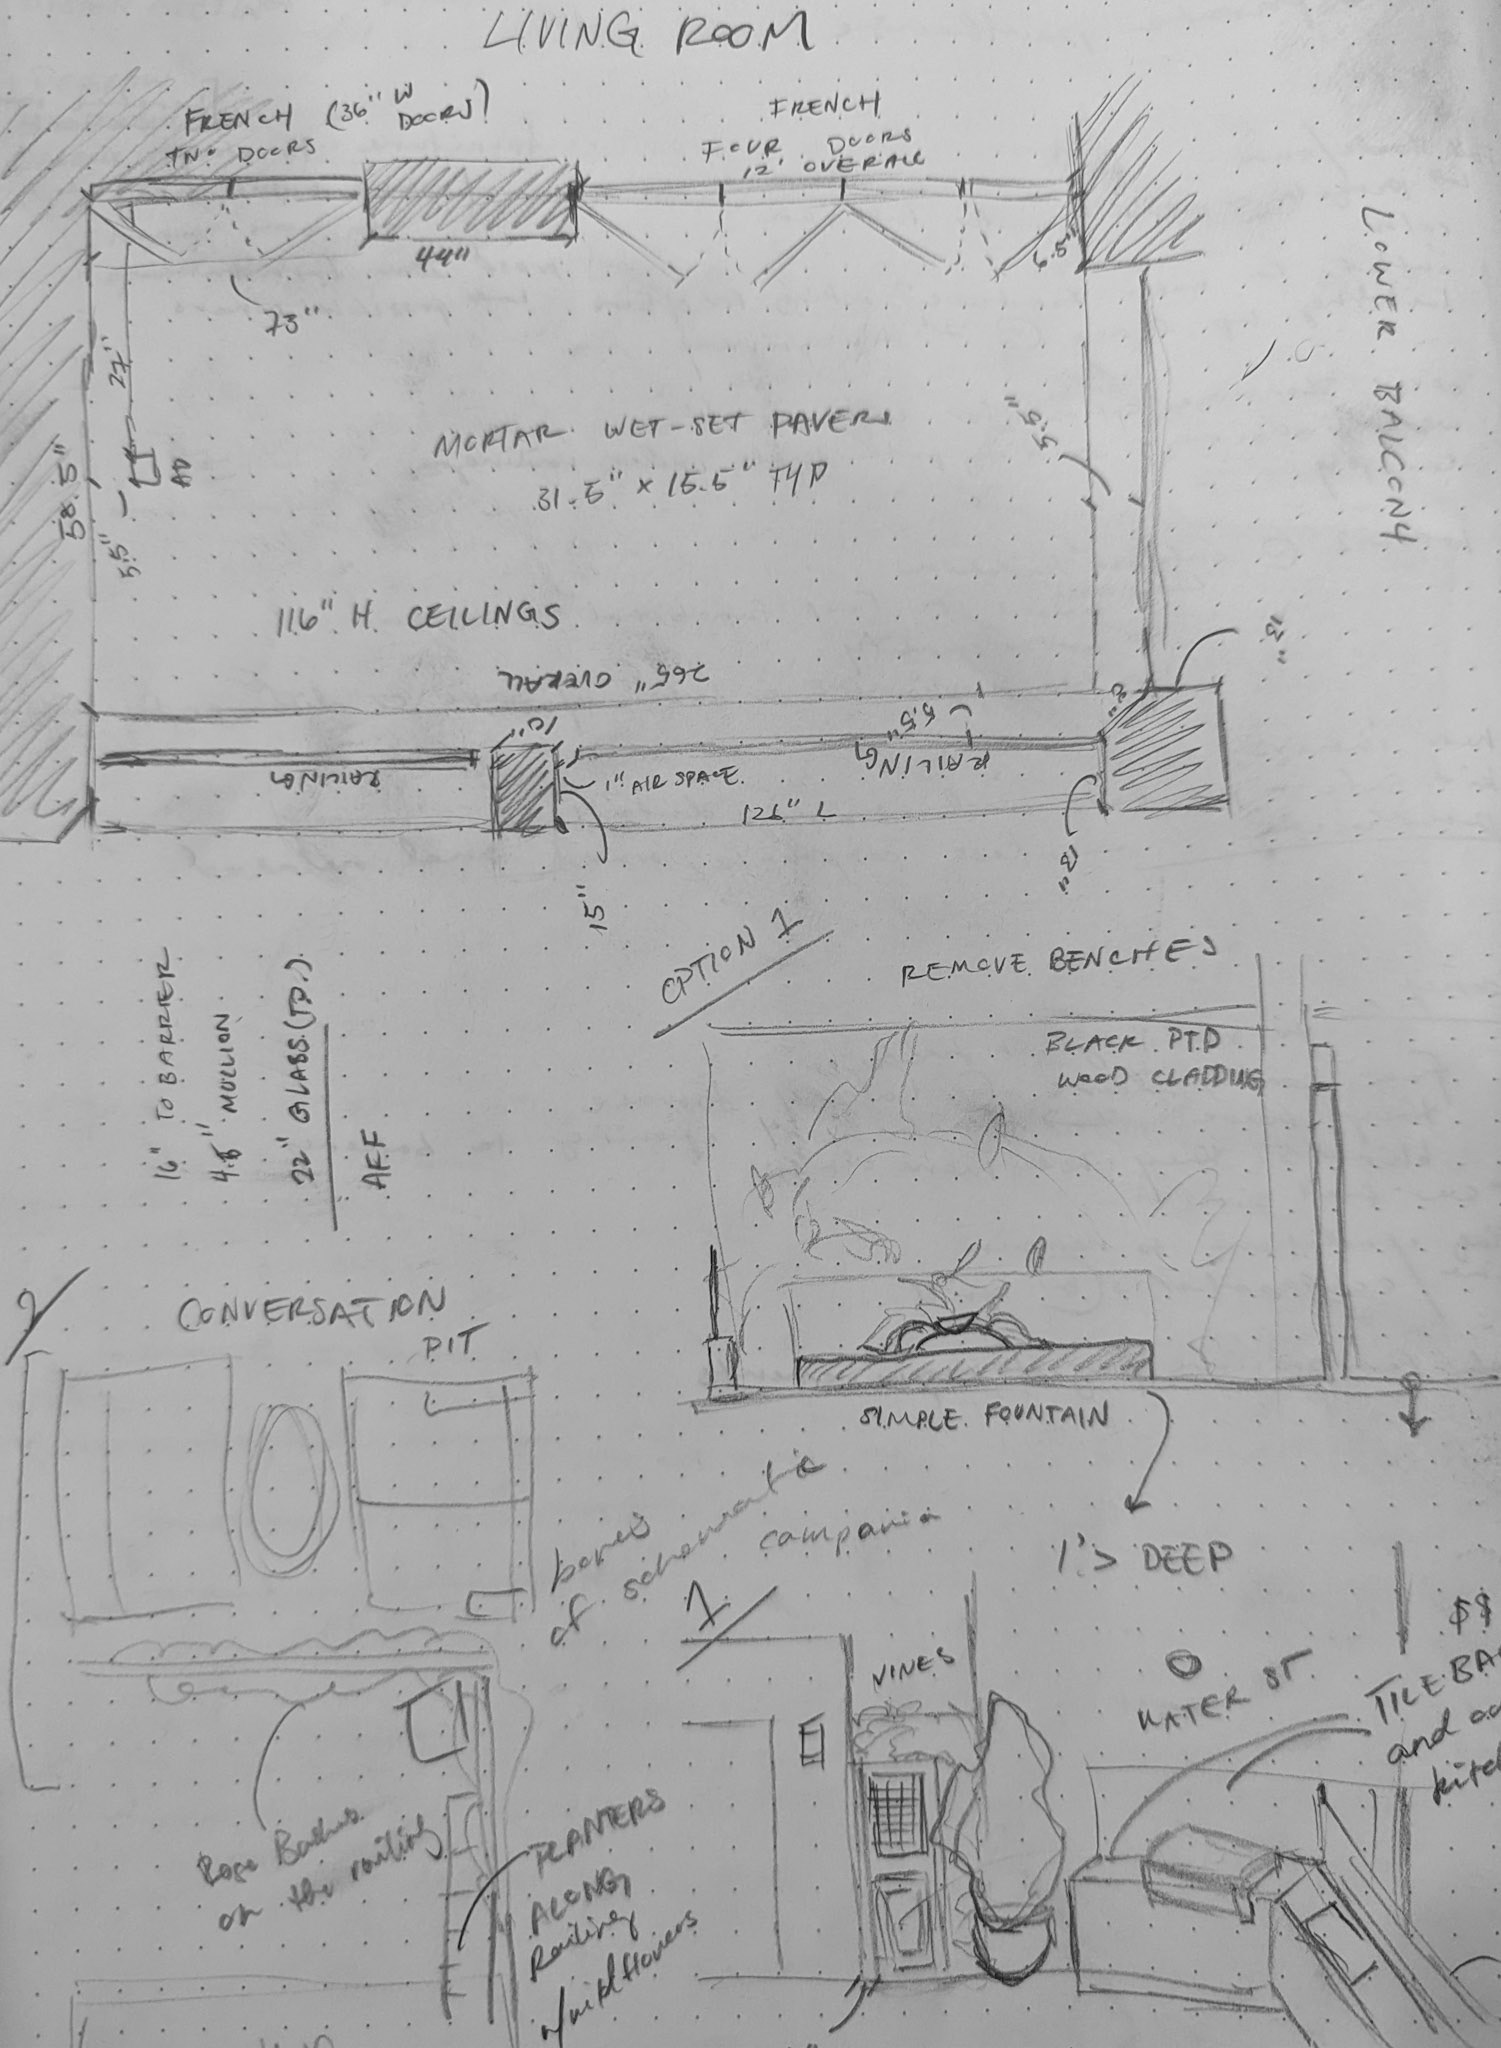 LIVING ROOM
FRENCH (36" W DOORS)
TWO DOORS
FRENCH
FOUR DOORS
12' OVERALL
44"
73"
6.5"
LOWER BALCONY
27"
AD
58.5"
5.5"
MORTAR WET-SET PAVERS
31.5" x 15.5" TYP
5.5"
116" H CEILINGS
265" OVERALL
13"
10"
5.5"
RAILING
RAILING
1" AIR SPACE
126" L
15"
13"
16" TO BARRIER
MULLION
22" GLASS (TP.)
AFF
OPTION 1
REMOVE BENCHES
BLACK PTD
WOOD CLADDING
SIMPLE FOUNTAIN
1'> DEEP
2
CONVERSATION
PIT
bones
of schematic
campania
1
VINES
WATER ST.
$$
TILE
and
Rose Bushes
on the railing
PLANTERS
ALONG
Railing
w/wildflowers